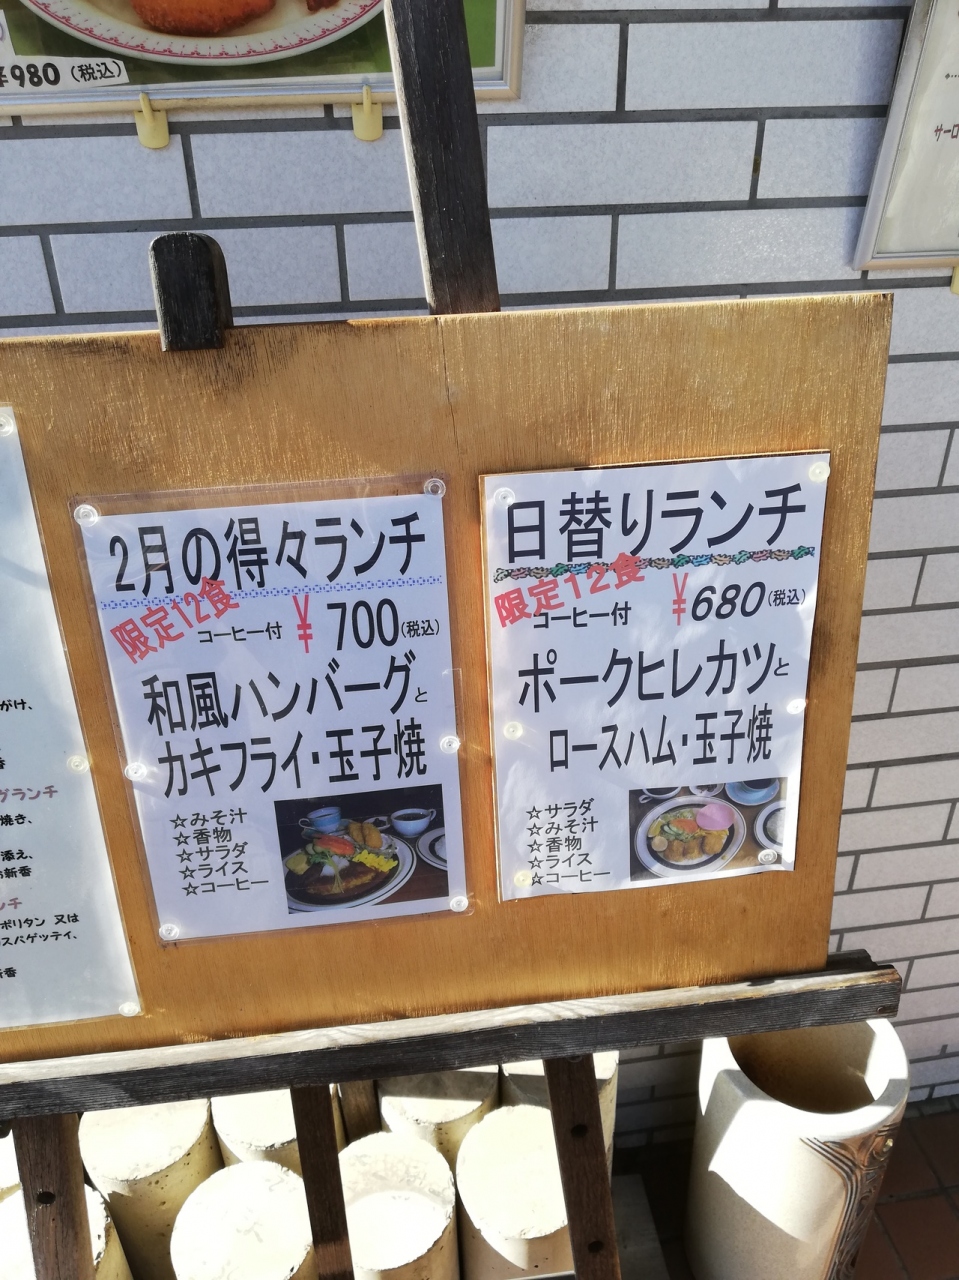 ¥980(税込)
サーロ
がけ、
香
グランチ
焼き、
添え、
お新香
ンチ
ポリタン 又は
スパゲッティ、
新香
2月の得々ランチ
限定12食
コーヒー付 ¥700(税込)
和風ハンバーグと
カキフライ・玉子焼
☆みそ汁
☆香物
☆サラダ
☆ライス
☆コーヒー
日替りランチ
限定12食
コーヒー付 ¥680(税込)
ポークヒレカツと
ロースハム・玉子焼
☆サラダ
☆みそ汁
☆香物
☆ライス
☆コーヒー